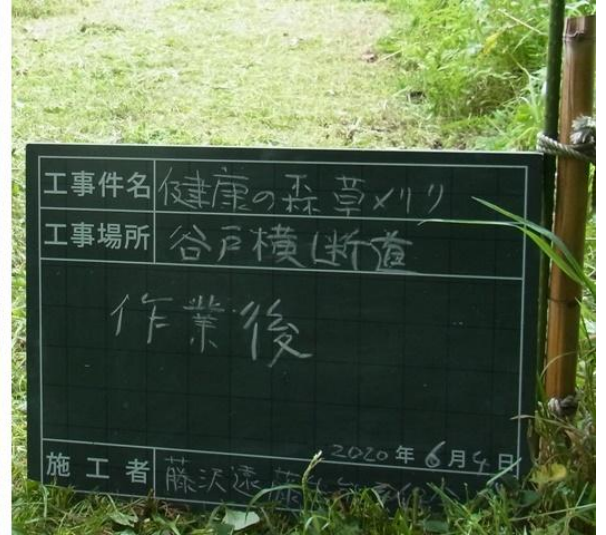 工事件名 健康の森草メリリ
工事場所 谷戸横断道
作業後
2020年6月4日
施工者 藤沢遠藤